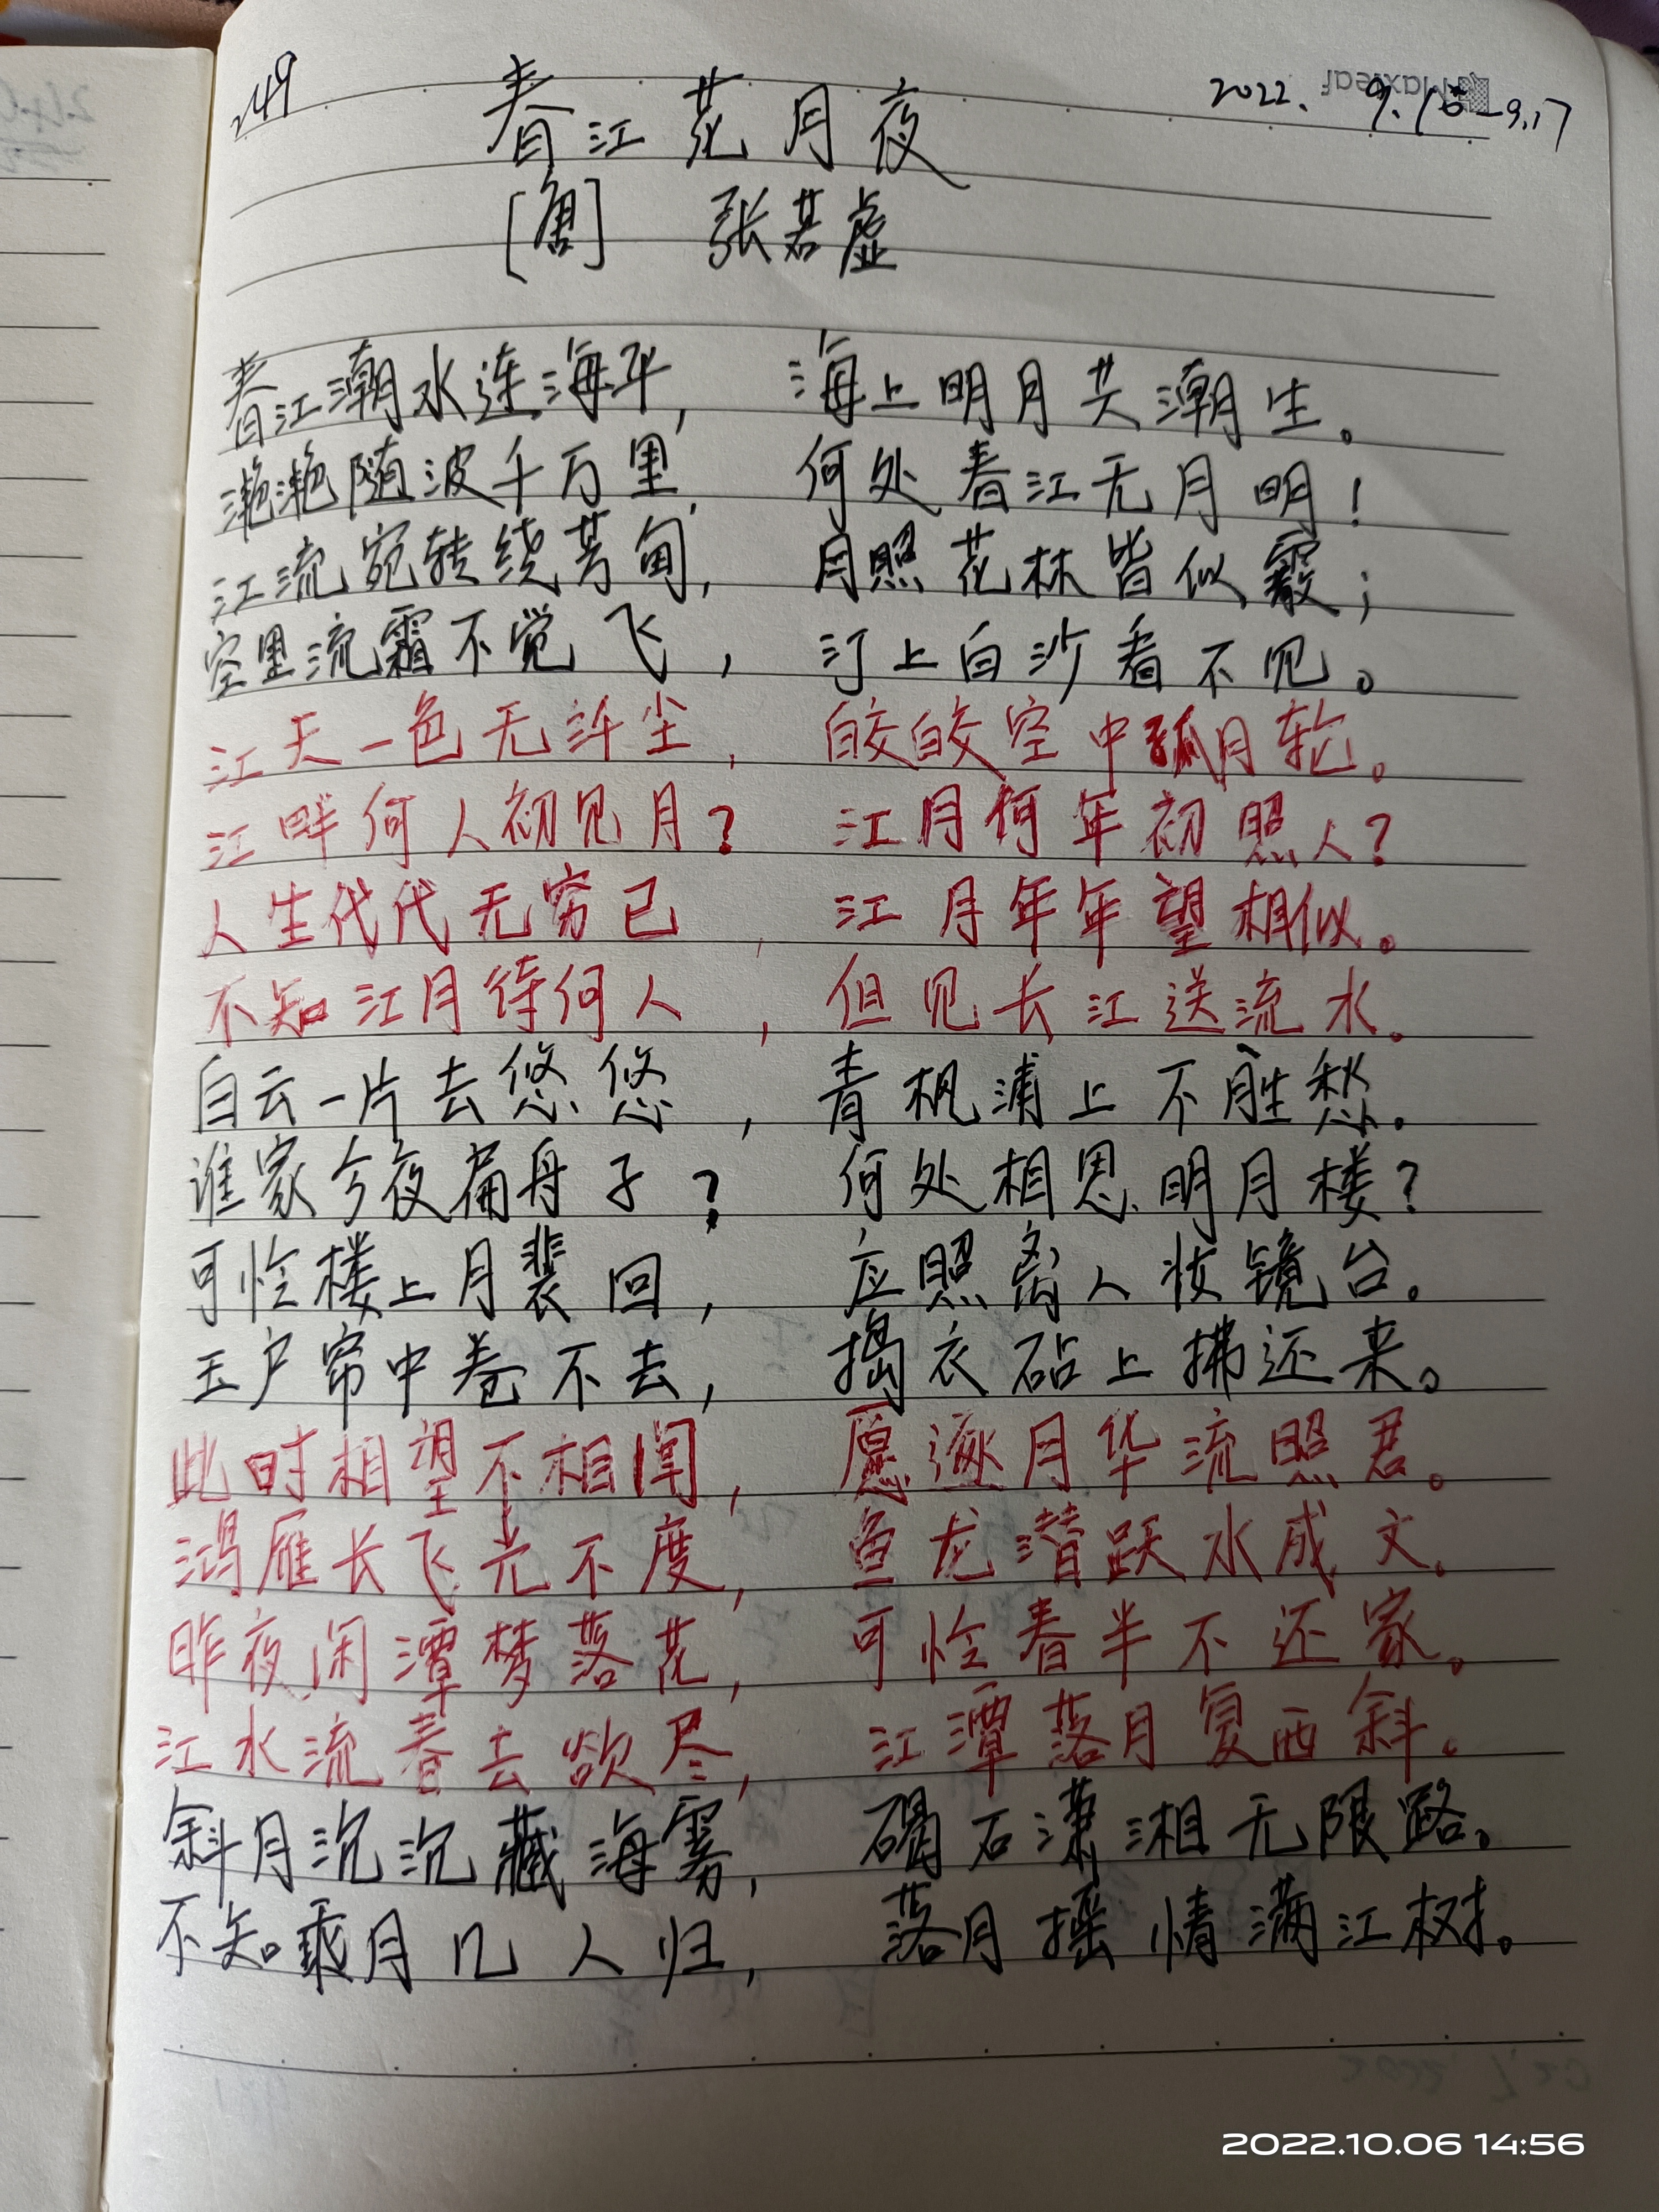 249
2022. 9.16-9.17
Maxleaf
春江花月夜
[唐] 张若虚
春江潮水连海平, 海上明月共潮生。
滟滟随波千万里, 何处春江无月明!
江流宛转绕芳甸, 月照花林皆似霰;
空里流霜不觉飞, 汀上白沙看不见。
江天一色无纤尘, 皎皎空中孤月轮。
江畔何人初见月? 江月何年初照人?
人生代代无穷已, 江月年年望相似。
不知江月待何人, 但见长江送流水。
白云一片去悠悠, 青枫浦上不胜愁。
谁家今夜扁舟子? 何处相思明月楼?
可怜楼上月裴回, 应照离人妆镜台。
玉户帘中卷不去, 捣衣砧上拂还来。
此时相望不相闻, 愿逐月华流照君。
鸿雁长飞光不度, 鱼龙潜跃水成文。
昨夜闲潭梦落花, 可怜春半不还家。
江水流春去欲尽, 江潭落月复西斜。
斜月沉沉藏海雾, 碣石潇湘无限路。
不知乘月几人归, 落月摇情满江树。
2022.10.06 14:56